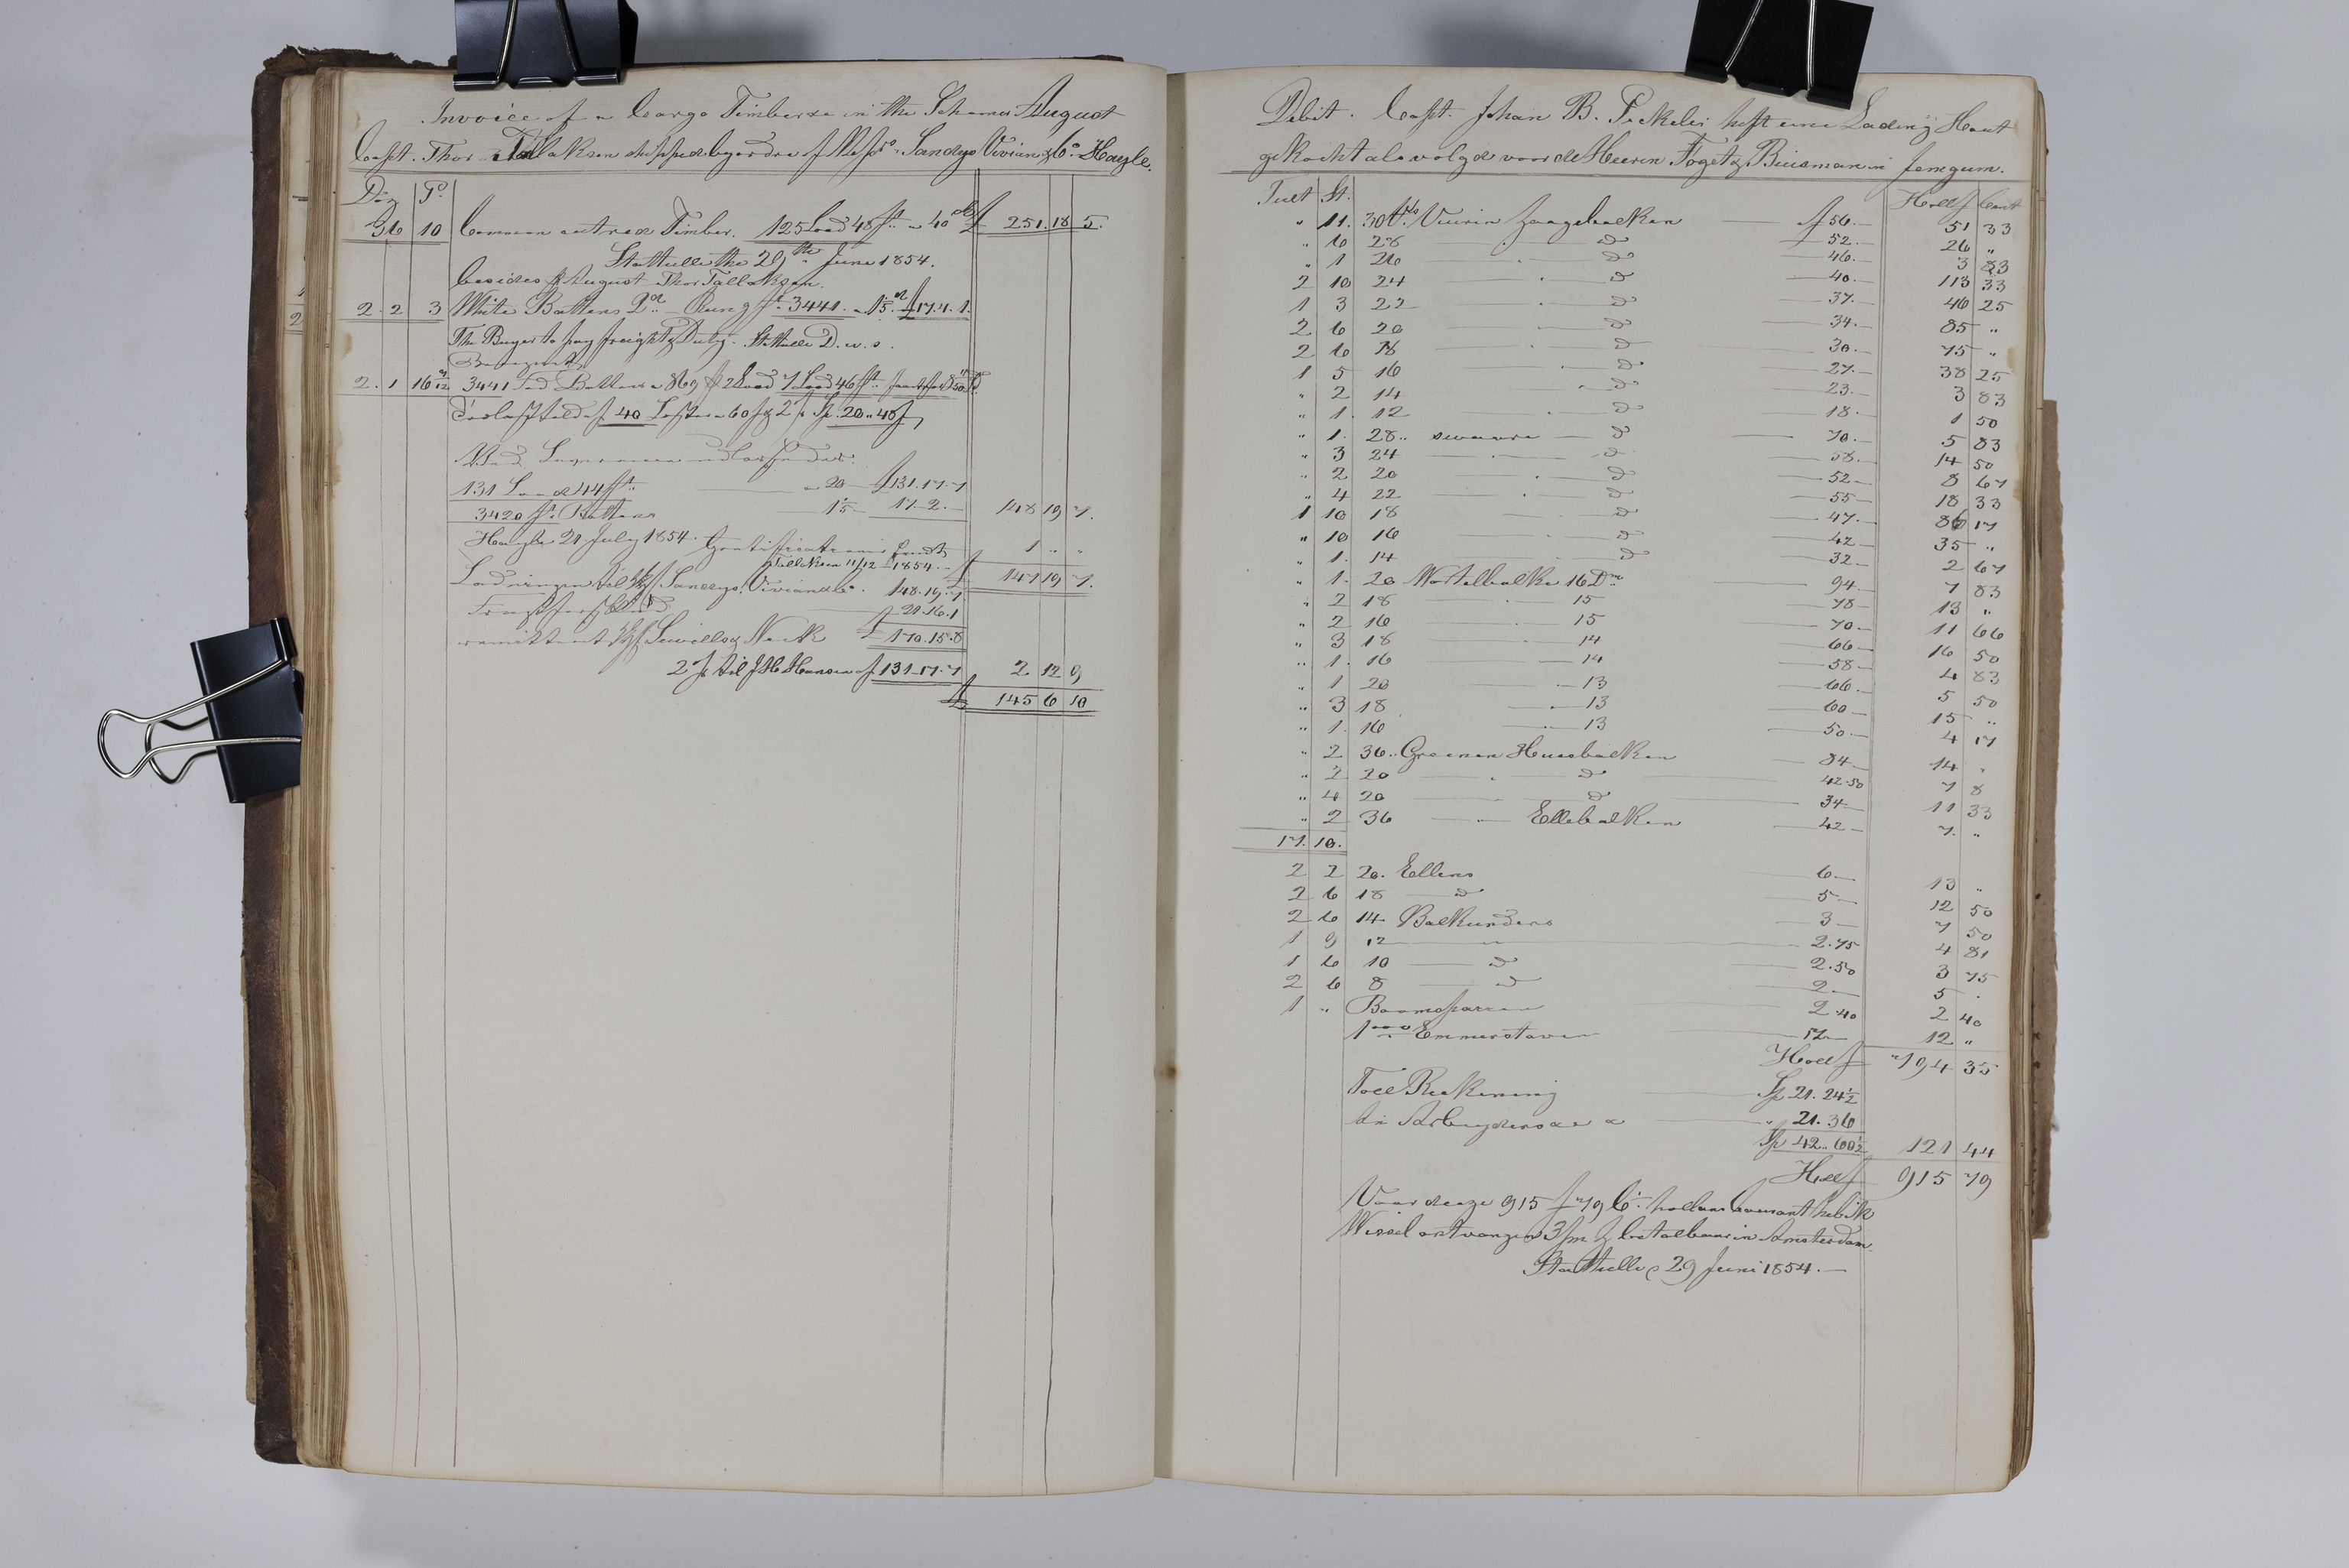 Invoice of a Cargo Timber &c in the Schooner August
Capt. Thor Tallaksen shipped by order of Messrs. Sandys Vivian & Co. Hayle.
Doz P.
36 10 Common cut red Timber. 125 Load 48 ft. a 40 sh £ 251. 18 5.
Stathelle the 29th June 1854.
besides p August Thor Tallaksen.
2. 2 3 White Battens 2d. — Rung ft. 3441. a 1 15. £ 17.4.1.
The Buyer to pay freight & Duty. Stathelle D. u. s.
2. 1 16 3441 fod Battens a 869 2 Load 7 Load 46 ft.
40 Lester a 60 2 Sp. 20.. 40
Ved
131 Load 44 ft. — a 20 — £ 131.17.7
3420 ft. Battens — 15 — 17. 2. — 148 19 7.
Hayle 21 July 1854. 1 " "
Tallaksen 11/12 1854. £ 147 19 7.
Ladningen til Sandys. Vivian & Co. 148.19.7
21.16.1
remitteret Sewills & Neck £ 170.15.8
2 p til J H Hansen af 131.17.7 2 12 9
£ 145 6 10
Debit. Capt. Johan B. Pekeler heft eine Lading Hout
gekocht als volgd voor de Heeren Fogetz Buisman in Jemgum.
Tult St. Holl f Cent
" 11. 30 Vuuren Zaagebalken — f 56. — 51 33
" 6 28 — d — 52. — 26 "
" 1 26 · d — 46. — 3 83
2 10 24 — d — 40. — 113 33
1 3 22 — d — 37. — 46 25
2 6 20 — d — 34. — 85 "
2 6 18 — d — 30. — 75 "
1 5 16 — d — 27. — 38 25
" 2 14 — d — 23. — 3 83
" 1. 12 · d — 18. — 1 50
" 1. 28.. swaare — d — 70. — 5 83
" 3 24 — d — 58. — 14 50
" 2 20 — d — 52. — 8 67
" 4 22 — d — 55 — 18 33
1 10 18 — d — 47. — 86 17
" 10 16 — d — 42 — 35 "
" 1. 14 — d — 32 — 2 67
" 1. 20 Wortelbalke 16 Dm — 94 — 7 83
" 2 18 — 15 — 78 — 13 "
" 2 16 — 15 — 70 — 11 66
" 3 18 — 14 — 66 — 16 50
" 1. 16 — 14 — 58 — 4 83
" 1 20 — 13 — 66. — 5 50
" 3 18 — 13 — 60 — 15 "
" 1. 16 — 13 — 50. — 4 17
" 2 36.. Greinen Huusbalken — 84 — 14 "
" 2 20 — d — 42.50 7 8
" 4 20 — d — 34 — 11 33
" 2 36 — Ellebalken — 42 — 7. "
17. 10.
2 2 20. Ellens 6 — 13 "
2 6 18 — d 5 — 12 50
2 6 14 Balkunders 3 — 7 50
1 9 12 — " — 2.75 4 81
1 6 10 — d — 2.50 3 75
2 6 8 — d — 2. — 5 .
1 " Boomsparren — 2 40 2 40
1000 Emmerstaven — 12 — 12 "
Holl f 794 35
Toll Rekening — Sp 21. 24½
An Arbeyders — " 21. 36
Sp 42.. 60½ 121 44
Holl f 915 79
Voor deeze 915 f 79 Ct. hollans Courant heb ik
Wissel ontvangen 3/m betalbaar in Amsterdam.
Stathelle 29 Juni 1854. —